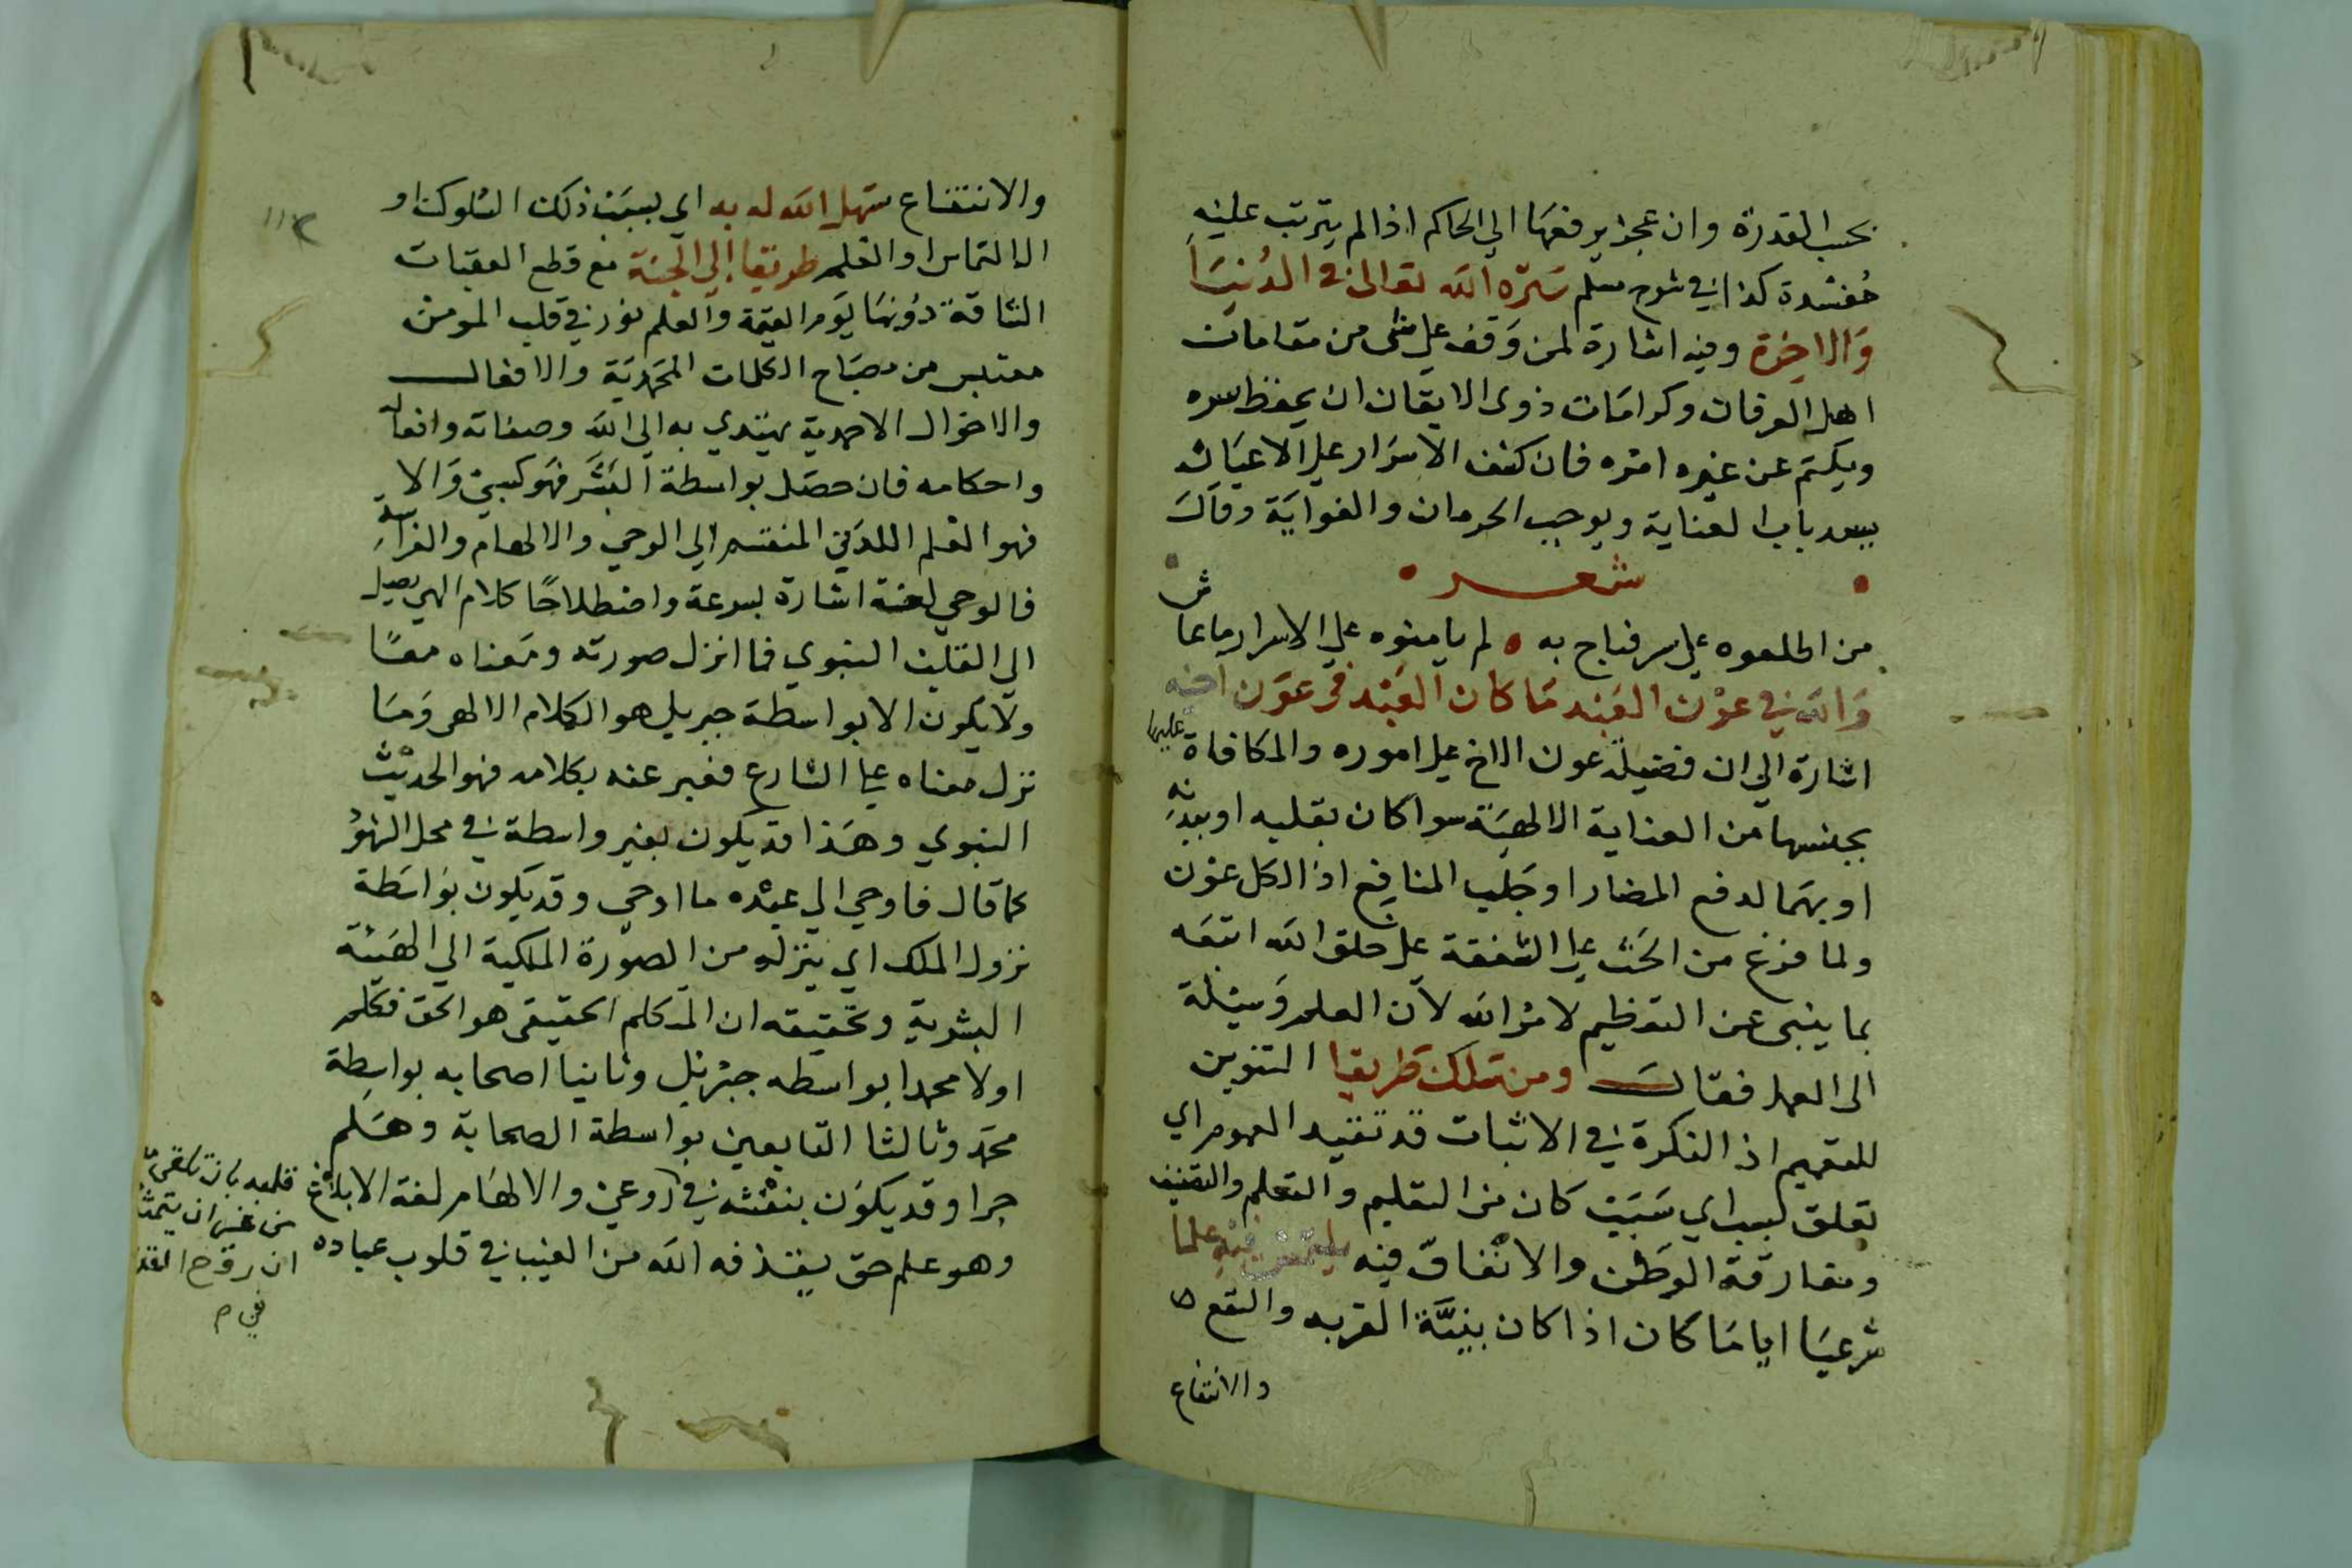 بحسب القدرة وان عجز يرفعها الي الحاكم اذا لم يترتب عليه
مفسدة كذا في شرح مسلم ستره الله تعالى في الدنيا
والاخرة وفيه اشارة لمن وقف علي شى من مقامات
اهل العرفان وكرامات ذوى الايقان ان يحفظ سره
ويكتم عن غيره امره فان كشف الاسرار علي الاغيار
يسد باب العناية ويوجب الحرمان والغواية وقال
شعر
من اطلعوه علي سر فباح به لم يامنوه علي الاسرار ماعاش
والله في عون العبد ما كان العبد في عون اخيه
اشارة الي ان فضيلة عون الاخ علي اموره والمكافاة عليها
بجنسها من العناية الالهية سوا كان بقلبه او ببدنه
او بهما لدفع المضار او جلب المنافع اذ الكل عون
ولما فرغ من الحث علي الشفقة علي خلق الله اتبعه
بما ينبى عن التعظيم لامر الله لان العلم وسيلة
الى العمل فقال ومن سلك طريقا التنوين
للتعميم اذ النكرة في الاثبات قد تفيد العموم اي
تعلق بسبب اي سبب كان من التعليم والتعلم والتصنيف
ومفارقة الوطن والانفاق فيه يلتمس فيه علما
شرعيا اياما كان اذا كان بنية القربه والنفع
والانتفاع
والانتفاع سهل الله له به اي بسبب ذلك السلوك او
الالتماس او العلم طريقا الي الجنة مع قطع العقبات
الشاقة دونها يوم القيمة والعلم نور في قلب المومن
مقتبس من مصباح الكلمات المحمدية والافعال
والاحوال الاحمدية يهتدي به الي الله وصفاته وافعاله
واحكامه فان حصل بواسطة البشر فهو كسبي والا
فهو العلم اللدني المنقسم الي الوحي والالهام والفراسة
فالوحي لغة اشارة بسرعة واصطلاحا كلام الهي يصل
الي القلب النبوي فما انزل صورته ومعناه معا
ولا يكون الا بواسطة جبريل هو الكلام الالهي وما
نزل معناه علي الشارع فعبر عنه بكلامه فهو الحديث
النبوي وهذا قد يكون بغير واسطة في محل الشهود
كما قال فاوحي الي عبده ما اوحي وقد يكون بواسطة
نزول الملك اي ينزله من الصورة الملكية الي الهيئة
البشرية وتحقيقه ان المتكلم الحقيقي هو الحق فكلم
اولا محمدا بواسطه جبرئيل وثانيا اصحابه بواسطة
محمد وثالثا التابعين بواسطة الصحابة وهلم
جرا وقد يكون بنفثه في روعي والالهام لغة الابلاغ
وهو علم حق يقذفه الله من الغيب في قلوب عباده
قلبه بان يلقي
من غير ان يتمثل
ان روح القدس
في م